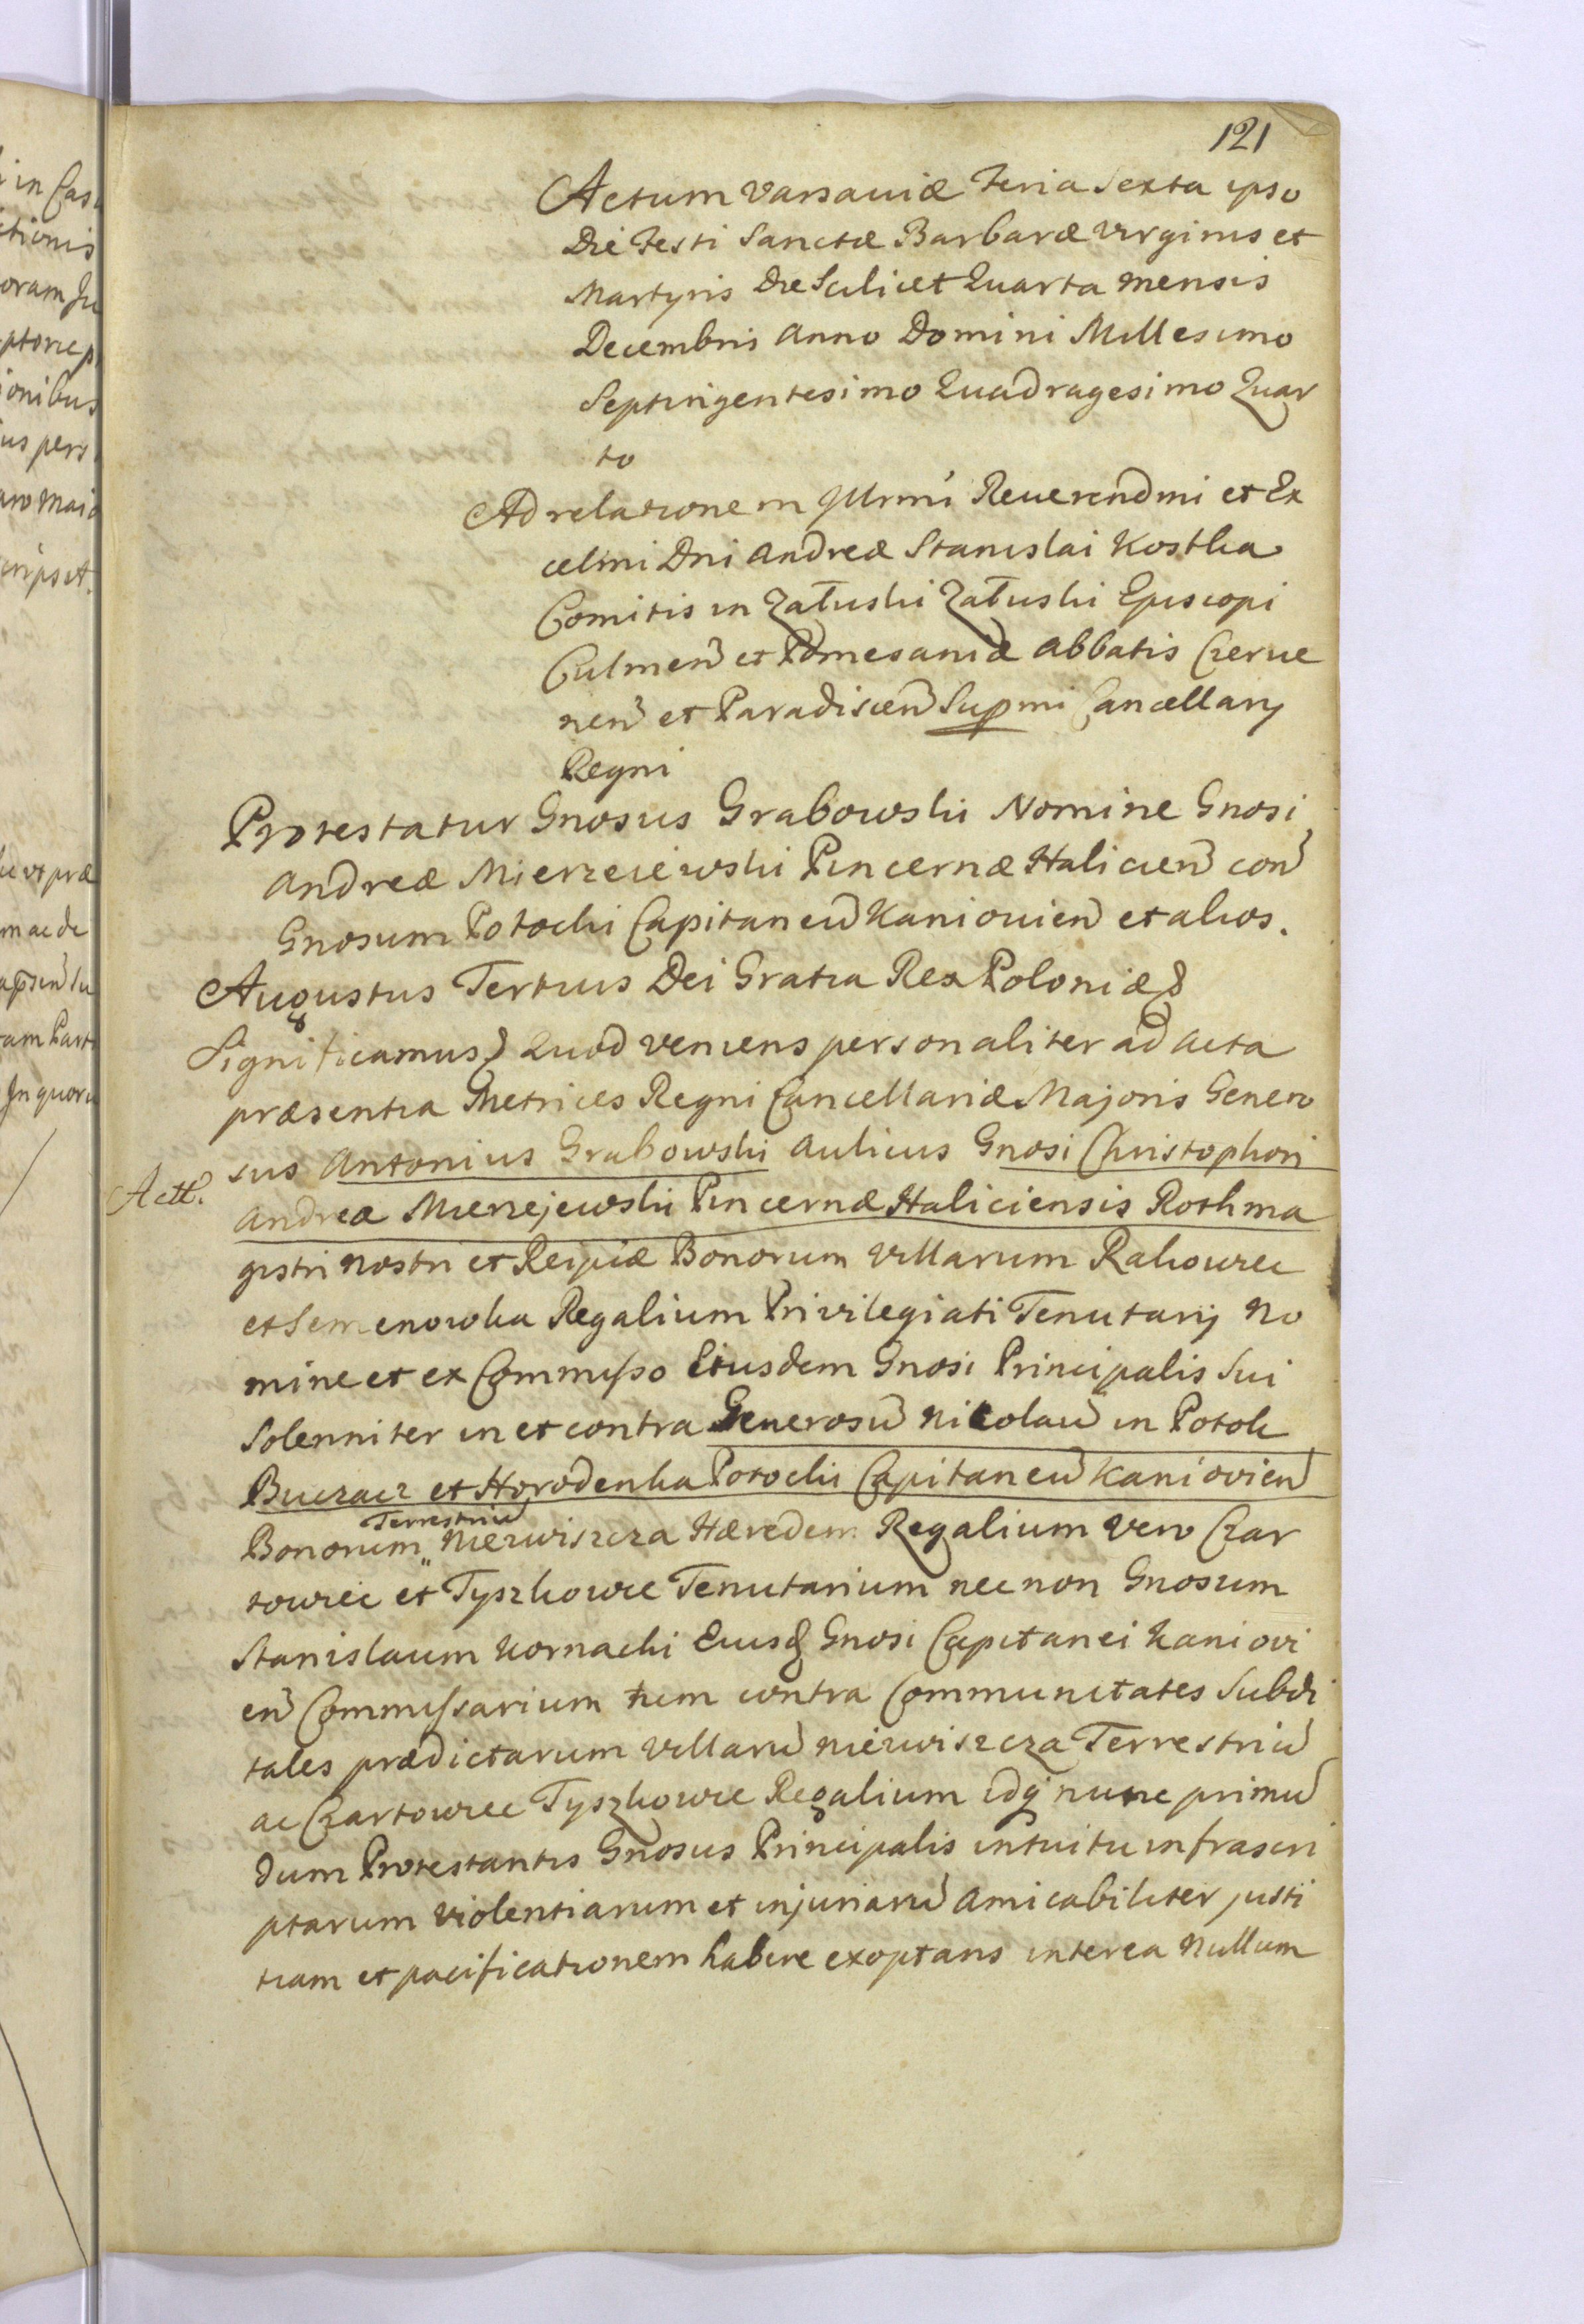 121
Actum Varsaviæ Feria Sexta ipso
Die Festi Sanctæ Barbaræ Virginis et
Martyris Die Scilicet Quarta Mensis
Decembris Anno Domini Millesimo
Septingentesimo Quadragesimo Quar
to
Ad relationem Illrmi Reverendmi et Ex
celmi Dni Andreæ Stanislai Kostka
Comitis in Załuski Załuski Episcopi
Culmen et Pomesaniæ Abbatis Czerve
nen et Paradiscen Supmi Cancellarij
Regni
Protestatur Gnosus Grabowski Nomine Gnosi
Andreæ Mierzeiewski Pincernæ Halicien con
Gnosum Potocki Capitaneu Kaniovien et alios.
Augustus Tertius Dei Gratia Rex Poloniæ &
Significamus & Quod veniens personaliter ad Acta
præsentia Metrices Regni Cancellariæ Majoris Genero
sus Antonius Grabowski Aulicus Gnosi Christophori
Actt.
Andreæ Mierzejewski Pincernæ Haliciensis Rothma
gistri Nostri et Reipcæ Bonorum Villarum Rakowiec
et Semenowka Regalium Privilegiati Tenutarij No
mine et ex Commisso Eiusdem Gnosi Principalis Sui
Solenniter in et contra Generosu Nicolau in Potok
Buczacz et Horodenka Potocki Capitaneu Kaniovien
Terrestriu
Bonorum Niezwiszcza Hæredem Regalium vero Czar
towiec et Tyszkowce Tenutarium nec non Gnosum
Stanislaum Kornacki Eiusd Gnosi Capitanei Kaniovi
en Commissarium tum contra Communitates Subdi
tales prædictarum Villaru Niezwiszcza Terrestriu
ac Czartowiec Tyszkowce Regalium idq nunc primu
dum Protestantis Gnosus Principalis intuitu infrascri
ptarum violentiarum et injuriaru amicabiliter justi
tiam et pacificationem habere exoptans interea nullum